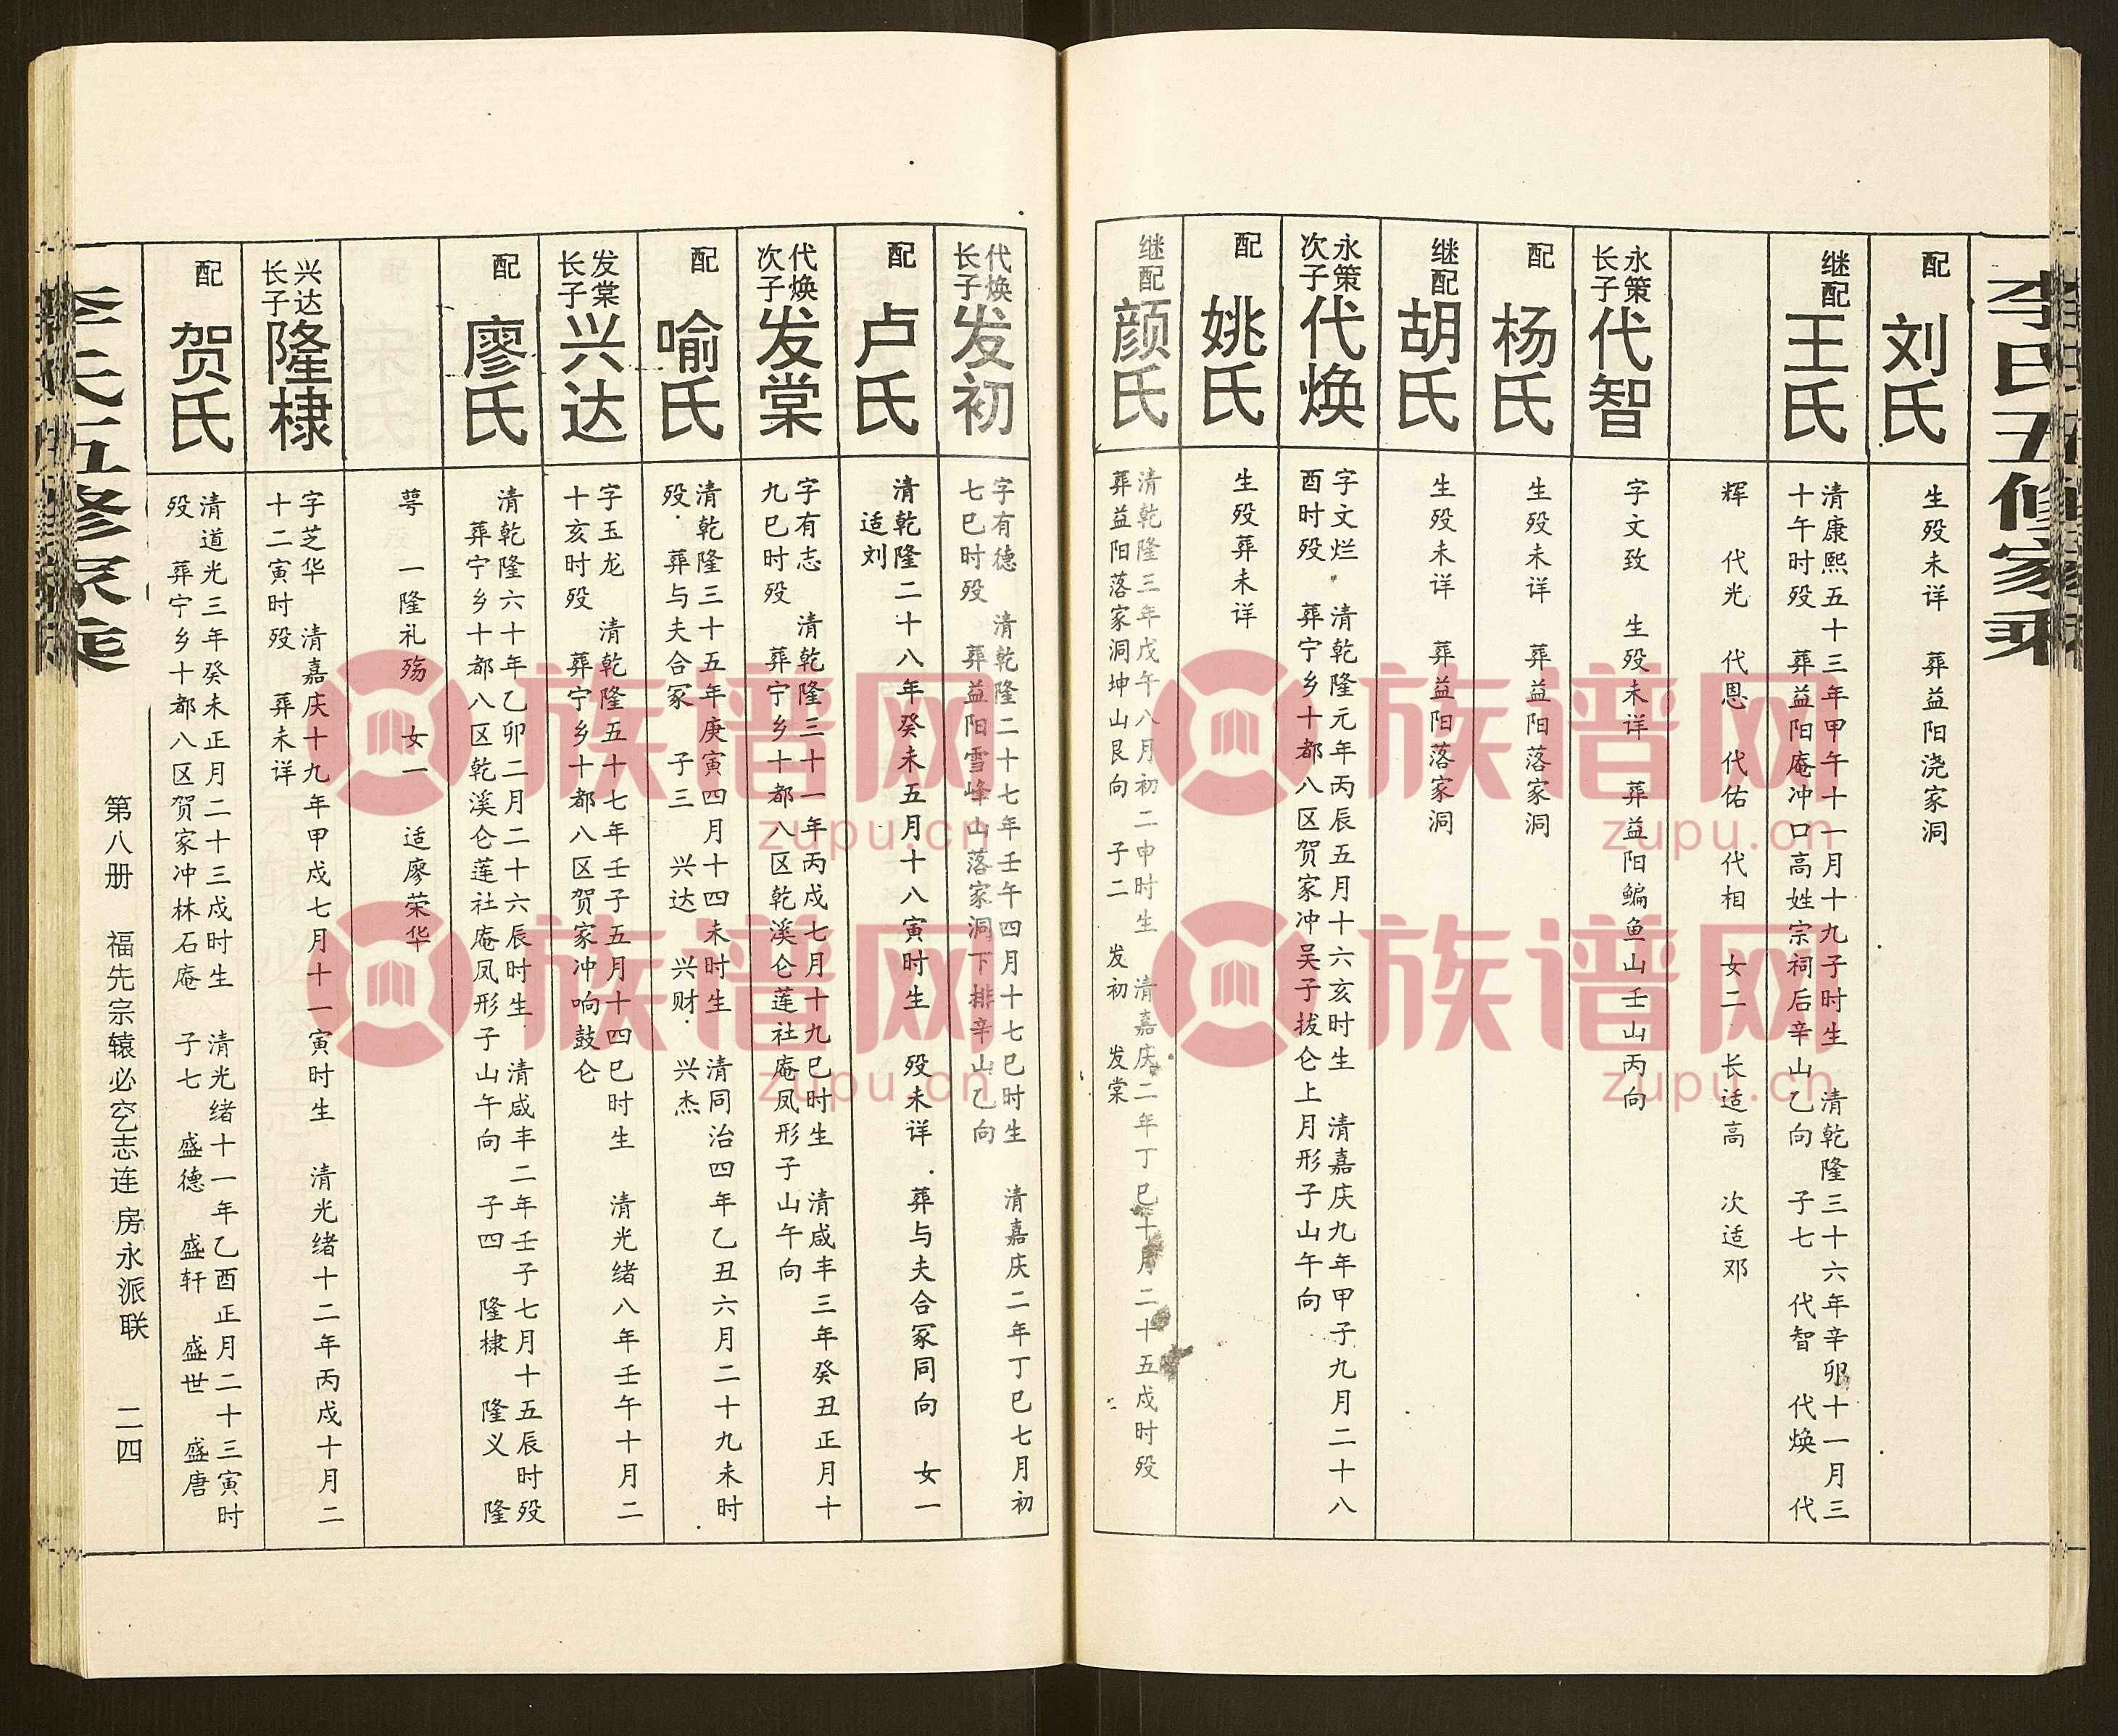 李氏五修家乘
配
刘氏
生殁未详 葬益阳浇家洞
继配
王氏
清康熙五十三年甲午十一月十九子时生 清乾隆三十六年辛卯十一月三
十午时殁 葬益阳庵冲口高姓宗祠后辛山乙向 子七 代智 代焕 代
辉 代光 代恩 代佑 代相 女二 长适高 次适邓
永策
长子
代智
字文致 生殁未详 葬益阳鳊鱼山壬山丙向
配
杨氏
生殁未详 葬益阳落家洞
继配
胡氏
生殁未详 葬益阳落家洞
永策
次子
代焕
字文烂 清乾隆元年丙辰五月十六亥时生 清嘉庆九年甲子九月二十八
酉时殁 葬宁乡十都八区贺家冲吴子拔仑上月形子山午向
配
姚氏
生殁葬未详
继配
颜氏
清乾隆三年戊午八月初二申时生 清嘉庆二年丁巳十月二十五戌时殁
葬益阳落家洞坤山艮向 子二 发初 发棠
代焕
长子
发初
字有德 清乾隆二十七年壬午四月十七巳时生 清嘉庆二年丁巳七月初
七巳时殁 葬益阳雪峰山落家洞下排辛山乙向
配
卢氏
清乾隆二十八年癸未五月十八寅时生 殁未详 葬与夫合冢同向 女一
适刘
代焕
次子
发棠
字有志 清乾隆三十一年丙戌七月十九巳时生 清咸丰三年癸丑正月十
九巳时殁 葬宁乡十都八区乾溪仑莲社庵凤形子山午向
配
喻氏
清乾隆三十五年庚寅四月十四未时生 清同治四年乙丑六月二十九未时
殁 葬与夫合冢 子三 兴达 兴财 兴杰
发棠
长子
兴达
字玉龙 清乾隆五十七年壬子五月十四巳时生 清光绪八年壬午十月二
十亥时殁 葬宁乡十都八区贺家冲响鼓仑
配
廖氏
清乾隆六十年乙卯二月二十六辰时生 清咸丰二年壬子七月十五辰时殁
葬宁乡十都八区乾溪仑莲社庵凤形子山午向 子四 隆棣 隆义 隆
萼 一隆礼殇 女一 适廖荣华
兴达
长子
隆棣
字芝华 清嘉庆十九年甲戌七月十一寅时生 清光绪十二年丙戌十月二
十二寅时殁 葬未详
配
贺氏
清道光三年癸未正月二十三戌时生 清光绪十一年乙酉正月二十三寅时
殁 葬宁乡十都八区贺家冲林石庵 子七 盛德 盛轩 盛世 盛唐
李氏五修家乘
第八册 福先宗辕必穵志连房永派联 二四
族谱网
zupu.cn
族谱网
zupu.cn
族谱网
zupu.cn
族谱网
zupu.cn